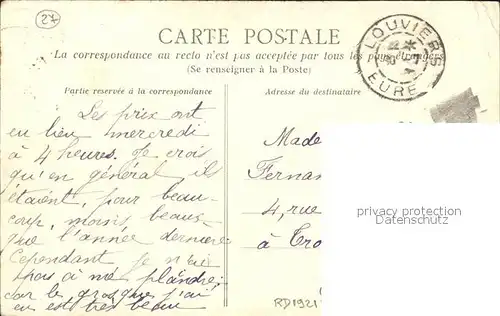 27
CARTE POSTALE
La correspondance au recto n'est pas acceptée par tous les pays étrangers
(Se renseigner à la Poste)
LOUVIERS
EURE
Partie reservée à la correspondance
Adresse du destinataire
Les prix ont
eu lieu mercredi
à 4 heures. Je crois
qu'en général ils
étaient, pour beau-
coup, moins beaux
que l'année dernière
Cependant je n'ai
pas à me plaindre,
car le gros que j'ai
eu est très beau
Made
Fernan
4, rue
à Tro
privacy protection
Datenschutz
RD1921